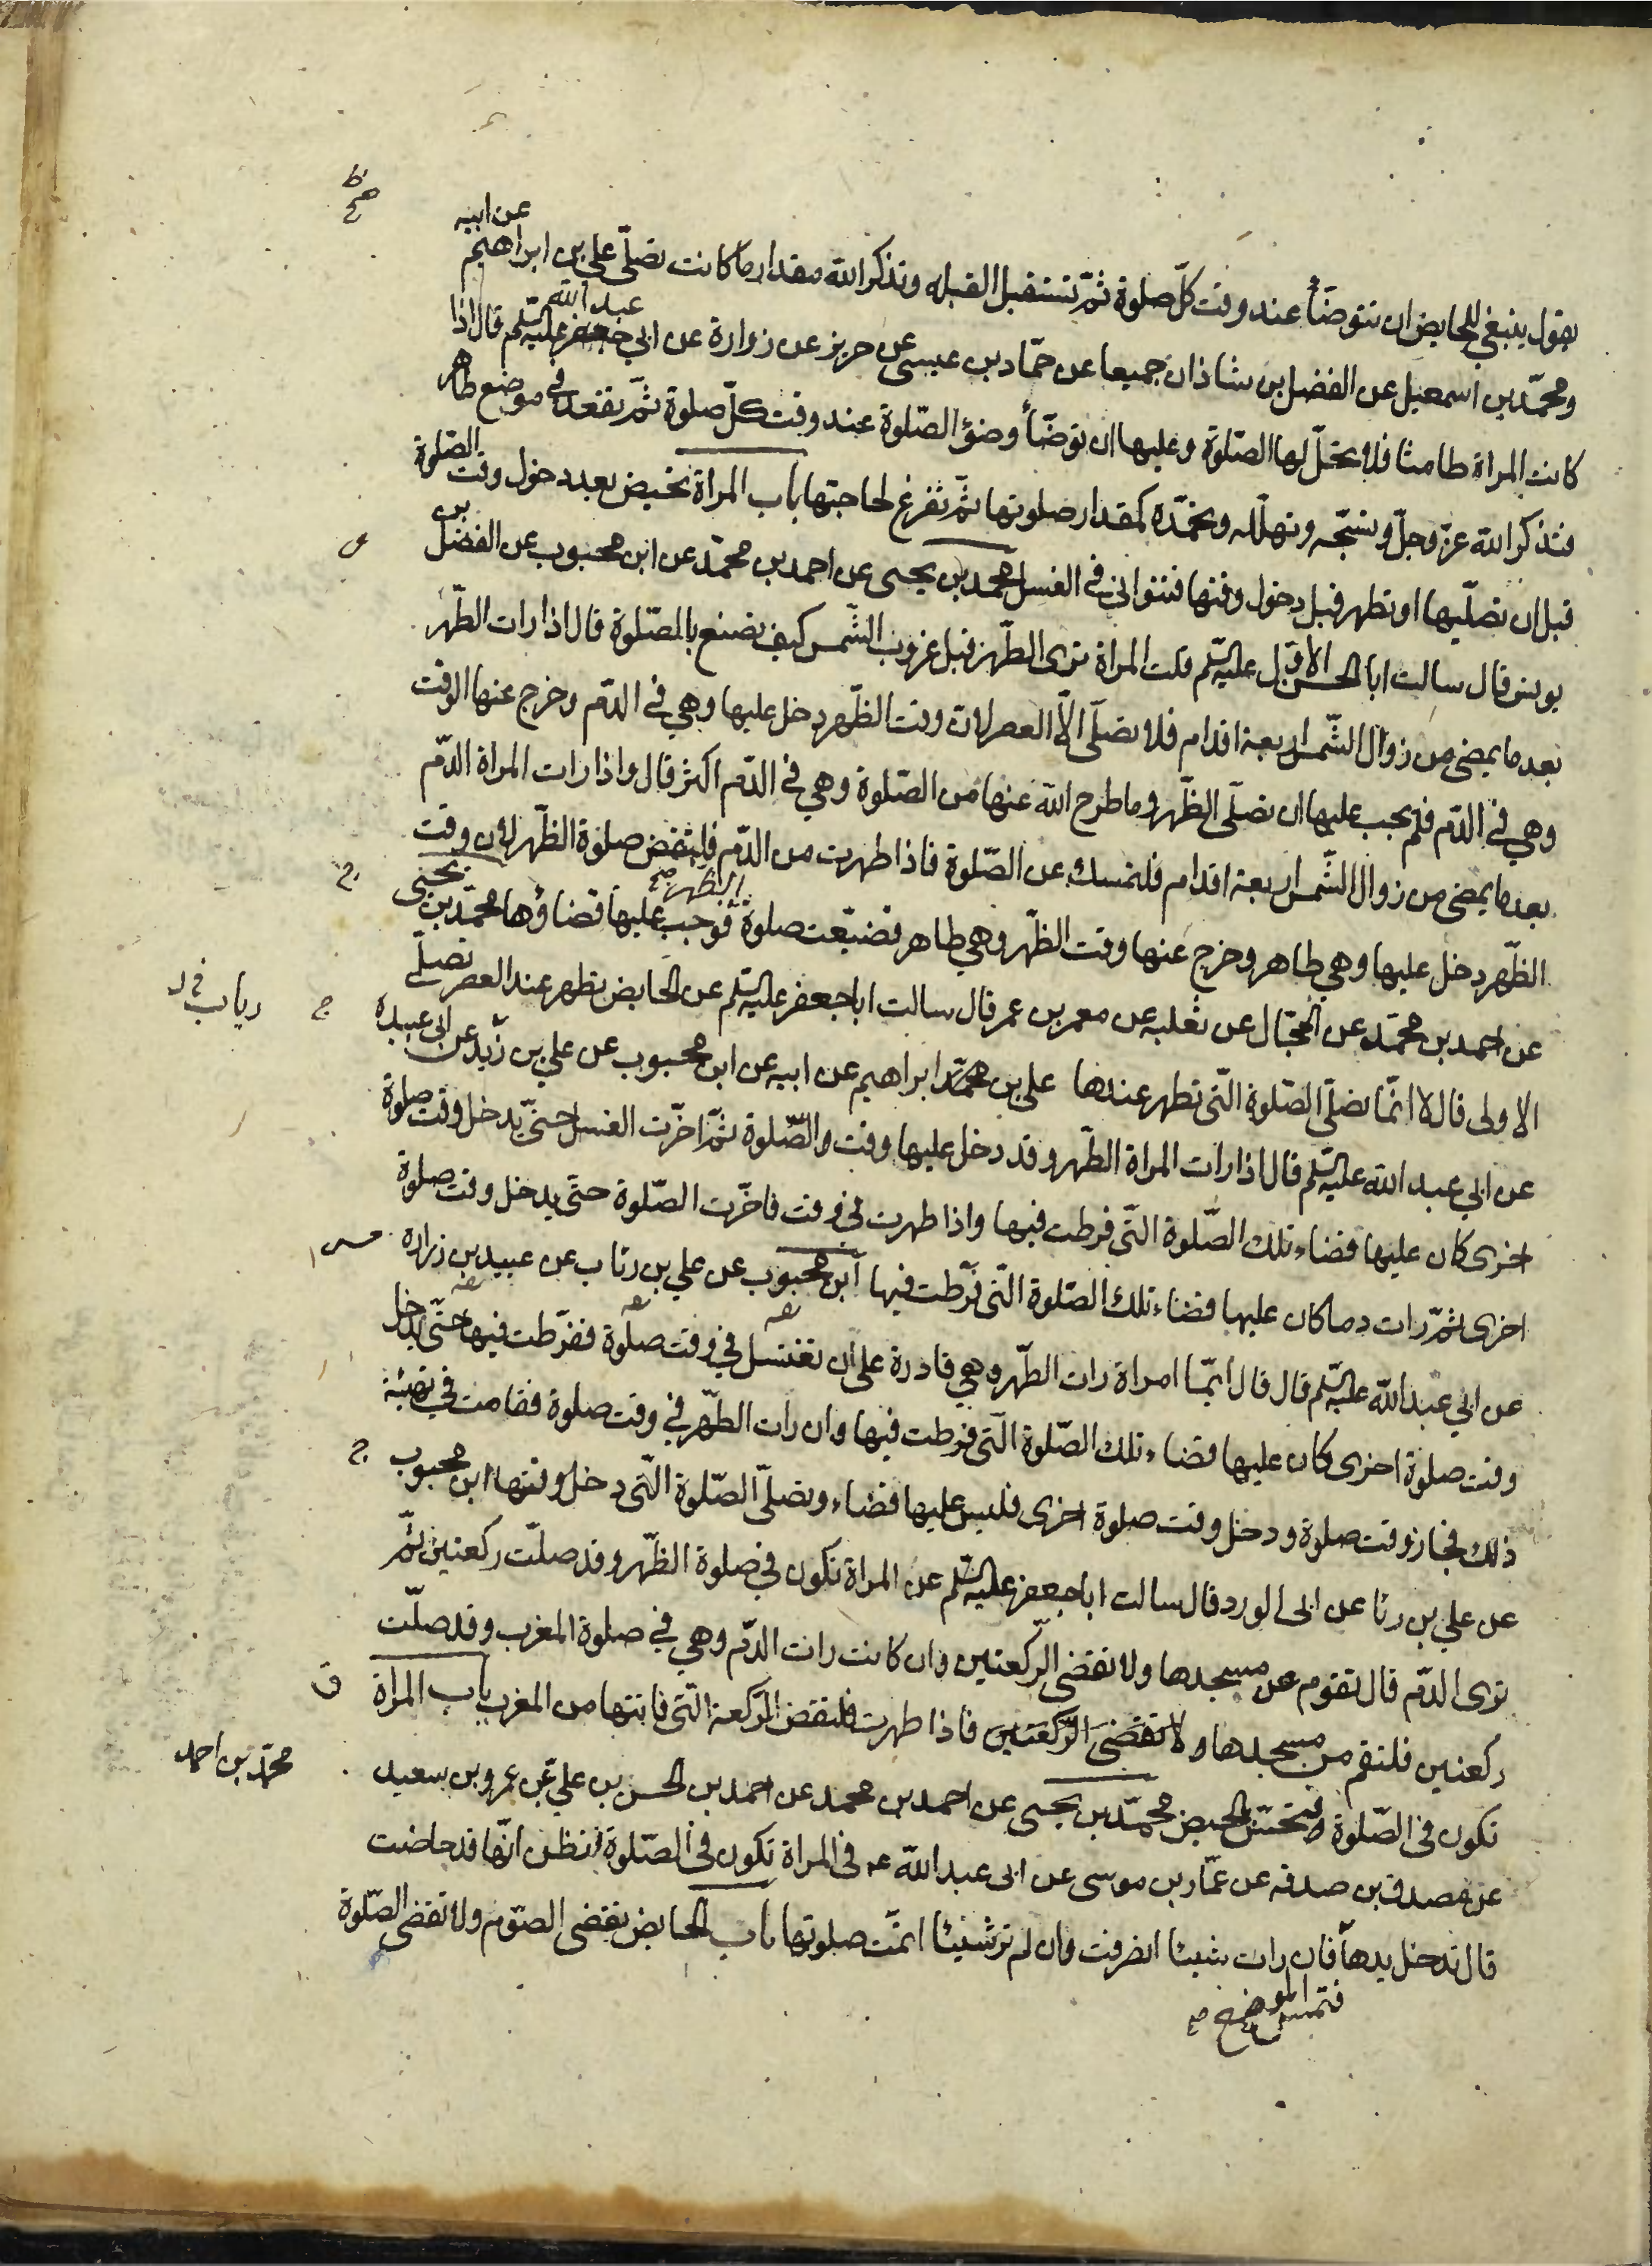 عن ابيه
يقول ينبغي للحايض ان تتوضأ عند وقت كلّ صلوة ثمّ تستقبل القبله وتذكر الله مقدار ما كانت تصلّى علي بن ابراهيم
عبد الله
ومحمّد بن اسمعيل عن الفضل بن شاذان جميعا عن حمّاد بن عيسى عن حريز عن زرارة عن ابي جعفر عليه السّلم قال اذا
كانت المراة طامثا فلا تحلّ لها الصّلوة وعليها ان توضّأ وضؤ الصّلوة عند وقت كلّ صلوة ثمّ تقعد في موضع طاهر
فتذكر الله عزّ وجلّ وتسبّحه وتهلّله وتحمّده كمقدار صلوتها ثمّ تفرغ لحاجتها باب المراة تحيض بعد دخول وقت الصّلوة
قبل ان تصلّيها او تطهر قبل دخول وقتها فتتوانى في الغسل محمد بن يحيى عن احمد بن محمّد عن ابن محبوب عن الفضل بن
يونس قال سالت ابا الحسن الاوّل عليه السّلم قلت المراة ترى الطّهر قبل غروب الشّمس كيف تصنع بالصّلوة قال اذا رات الطّهر
بعد ما يمضى من زوال الشّمس اربعة اقدام فلا تصلّى الّا العصر لانّ وقت الظّهر دخل عليها وهي في الدّم وخرج عنها الوقت
وهي في الدّم فلم يجب عليها ان تصلّى الظّهر وما طرح الله عنها من الصّلوة وهي في الدّم اكثر قال واذا رات المراة الدّم
بعد ما يمضى من زوال الشّمس اربعة اقدام فلتمسك عن الصّلوة فاذا طهرت من الدّم فلتقض صلوة الظّهر لانّ وقت
الظّهر دخل عليها وهي طاهر وخرج عنها وقت الظّهر وهي طاهر فضيّعت صلوة الظهر فوجب عليها قضاؤها محمّد بن يحيى
عن احمد بن محمّد عن الحجّال عن ثعلبه عن معمر بن عمر قال سالت ابا جعفر عليه السّلم عن الحايض تطهر عند العصر تصلّى
الاولى قال لا انّما تصلّى الصّلوة الّتى تطهر عندها علي بن محمّد ابراهيم عن ابيه عن ابن محبوب عن علي بن زيد عن ابى عبيده
عن ابي عبد الله عليه السّلم قال اذا رات المراة الطّهر وقد دخل عليها وقت والصّلوة ثمّ اخّرت الغسل حتّى يدخل وقت صلوة
اخرى كان عليها قضاء تلك الصّلوة الّتى فرطت فيها واذا طهرت في وقت فاخّرت الصّلوة حتّى يدخل وقت صلوة
اخرى ثمّ رات دما كان عليها قضاء تلك الصّلوة الّتى فرّطت فيها ابن محبوب عن علي بن رئاب عن عبيد بن زرارة
عن ابي عبد الله عليه السّلم قال قال ايّما امراة رات الطّهر وهي قادرة على ان تغتسل في وقت صلوة ففرّطت فيها حتّى يدخل
وقت صلوة اخرى كان عليها قضاء تلك الصّلوة الّتى فرطت فيها وان رات الطّهر في وقت صلوة فقامت في تهيئة
ذلك فجاز وقت صلوة ودخل وقت صلوة اخرى فليس عليها قضاء وتصلّى الصّلوة الّتى دخل وقتها ابن محبوب
عن علي بن رئا عن ابى الورد قال سالت ابا جعفر عليه السّلم عن المراة تكون في صلوة الظّهر وقد صلّت ركعتين ثمّ
ترى الدّم قال تقوم من مسجدها ولا تقضى الرّكعتين وان كانت رات الدّم وهي في صلوة المغرب وقد صلّت
ركعتين فلتقم من مسجدها ولا تقضى الرّكعتين فاذا طهرت فلتقض الرّكعة الّتى فاتتها من المغرب باب المراة
تكون في الصّلوة فتحسّ بالحيض محمّد بن يحيى عن احمد بن محمد عن احمد بن الحسن بن علي عن عمرو بن سعيد
عن مصدق بن صدقه عن عمّار بن موسى عن ابى عبد الله ع في المراة تكون في الصّلوة فتظن انّها قد حاضت
قال تدخل يدها فان رات شيئا انصرفت وان لم تر شيئا اتمّت صلوتها باب الحايض تقضى الصّوم ولا تقضى الصّلوة
فتمسّ الموضع صح
رياب في د
محمّد بن احمد